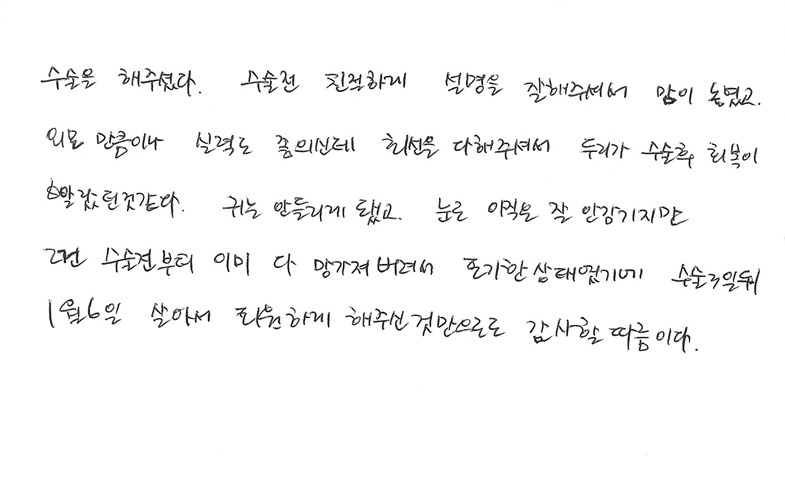 수술은 해주셨다. 수술전 친절하게 설명을 잘해주셔서 맘이 놓였고.
외모 만큼이나 실력도 좋의신데 최선을 다해주셔서 두리가 수술후 회복이
빨랐던것같다. 귀는 안들리게 됐고. 눈은 아직은 잘 안감기지만
그건 수술전부터 이미 다 망가져 버려서 포기한 상태였기에 수술3일뒤
1월6일 살아서 퇴원하게 해주신것만으로도 감사할 따름이다.